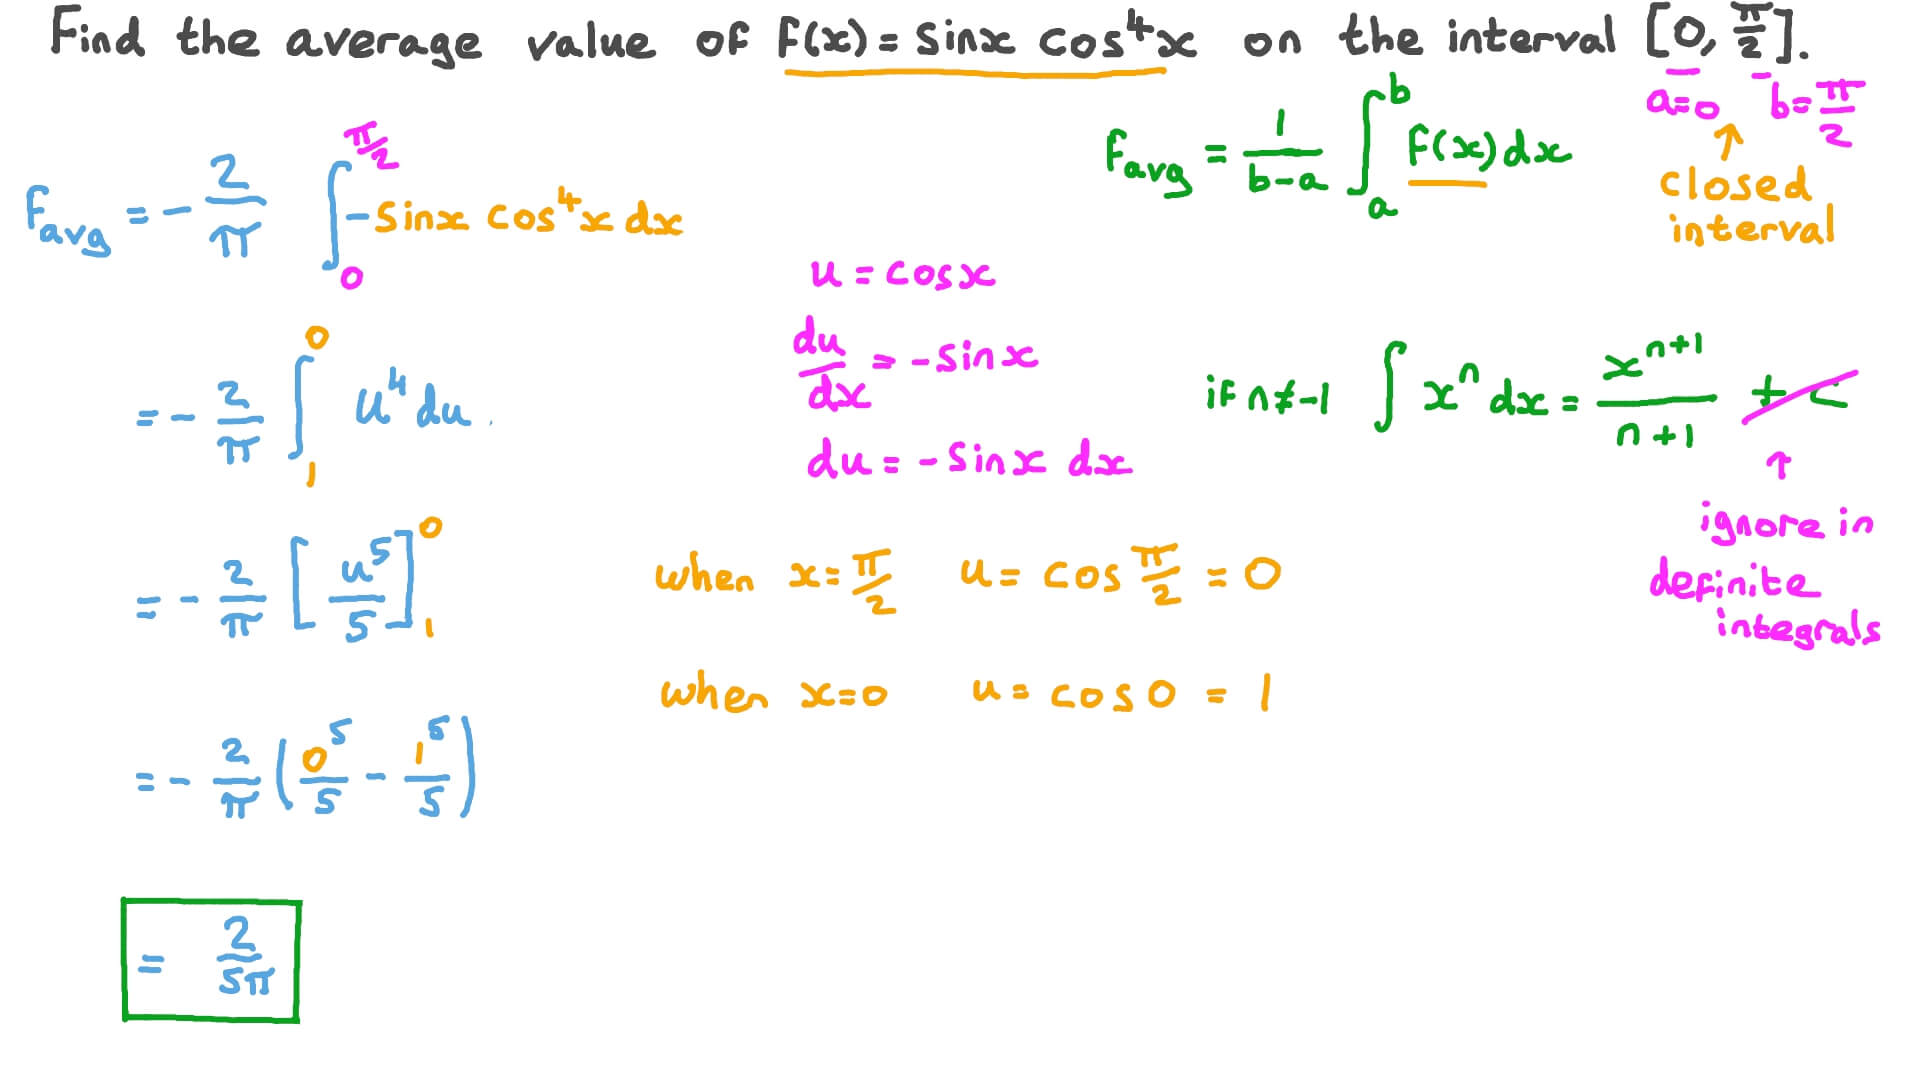 Find the average value of f(x) = sinx cos⁴x on the interval [0, π/2].
a=0 b=π/2
↑
closed
interval
f_avg = 1/(b-a) ∫_a^b f(x) dx
f_avg = - 2/π ∫_0^(π/2) -sinx cos⁴x dx
u = cosx
du/dx = -sinx
du = -sinx dx
if n≠-1 ∫ xⁿ dx = x^(n+1)/(n+1) + C
↑
ignore in
definite
integrals
= - 2/π ∫_1^0 u⁴ du.
= - 2/π [u⁵/5]_1^0
when x = π/2 u = cos π/2 = 0
when x=0 u = cos 0 = 1
= - 2/π (0⁵/5 - 1⁵/5)
= 2/5π